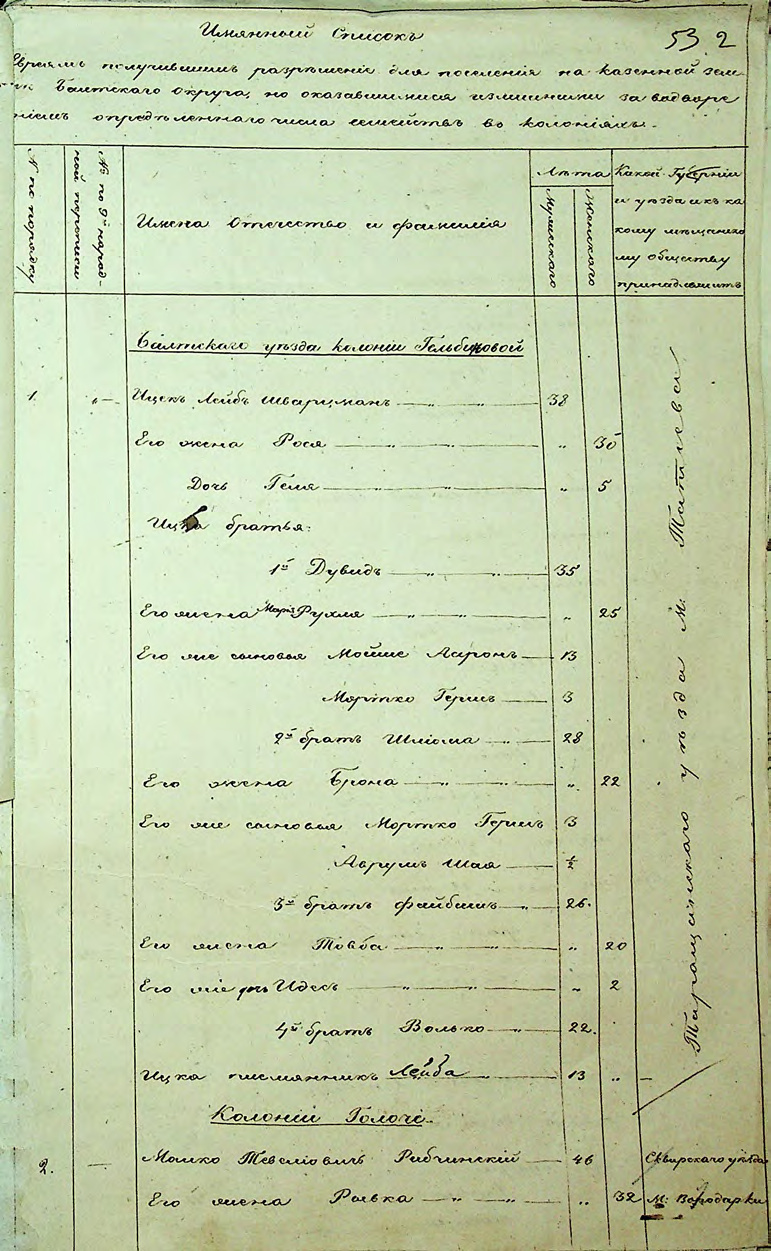 Имянный Списокъ
53 2
Евреямъ получившимъ разрѣшеніе для поселенія на казенной зем
Балтскаго округа, но оказавшимися излишними за водворе
ніемъ опредѣленнаго числа семействъ во колоніяхъ.
№ по порядку
№ по 9й народ-
ной переписи
Имена Отчество и фамилія
Лѣта
Мужскаго
Женскаго
Какой Губерніи
и уѣзда и къ ка
кому мѣщанско
му обществу
принадлежитъ
Балтскаго уѣзда колоніи Гельбиновой
1. „ — Ицекъ Лейбъ Шварцманъ — „ — „ — 38
Его жена Рося — „ — „ — „ 30
Дочь Геля — „ — „ — „ 5
Ицка братья:
1й Дувидъ — „ — „ — 35
Его жена Марз Рухля — „ — „ — „ 25
Его же сыновья Мойше Ааронъ — 13
Мортко Гершъ — 3
2й братъ Шліома — „ — 28
Его жена Брона — „ — „ — „ 22
Его же сыновья Мортко Гершъ 3
Аврумъ Шая — ½
3й братъ Файбишъ — „ 26.
Его жена Товба — „ — „ — „ 20
Его же дчь Идесъ — „ — „ — „ 2
4й братъ Волько — „ — 22.
Ицка племянникъ Лейба „ 13 „ —
Таращанскаго уѣзда М: Татіева
Колоніи Голочи.
2. — Мошко Тевелювичъ Рибчинскій — 46 Сквирскаго уѣзда
Его жена Рывка — „ — „ — „ 32 М: Володарки